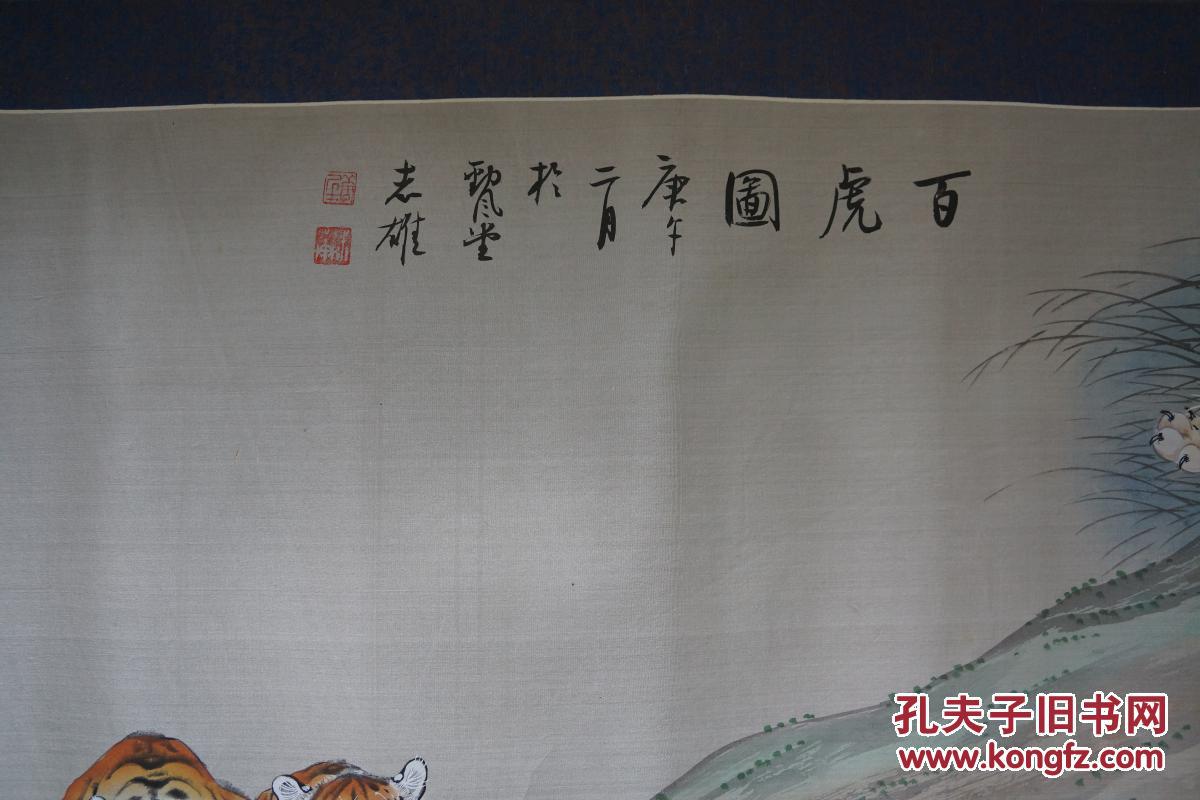 百虎圖
庚午
二月
於
堂
志雄
孔夫子旧书网
www.kongfz.com